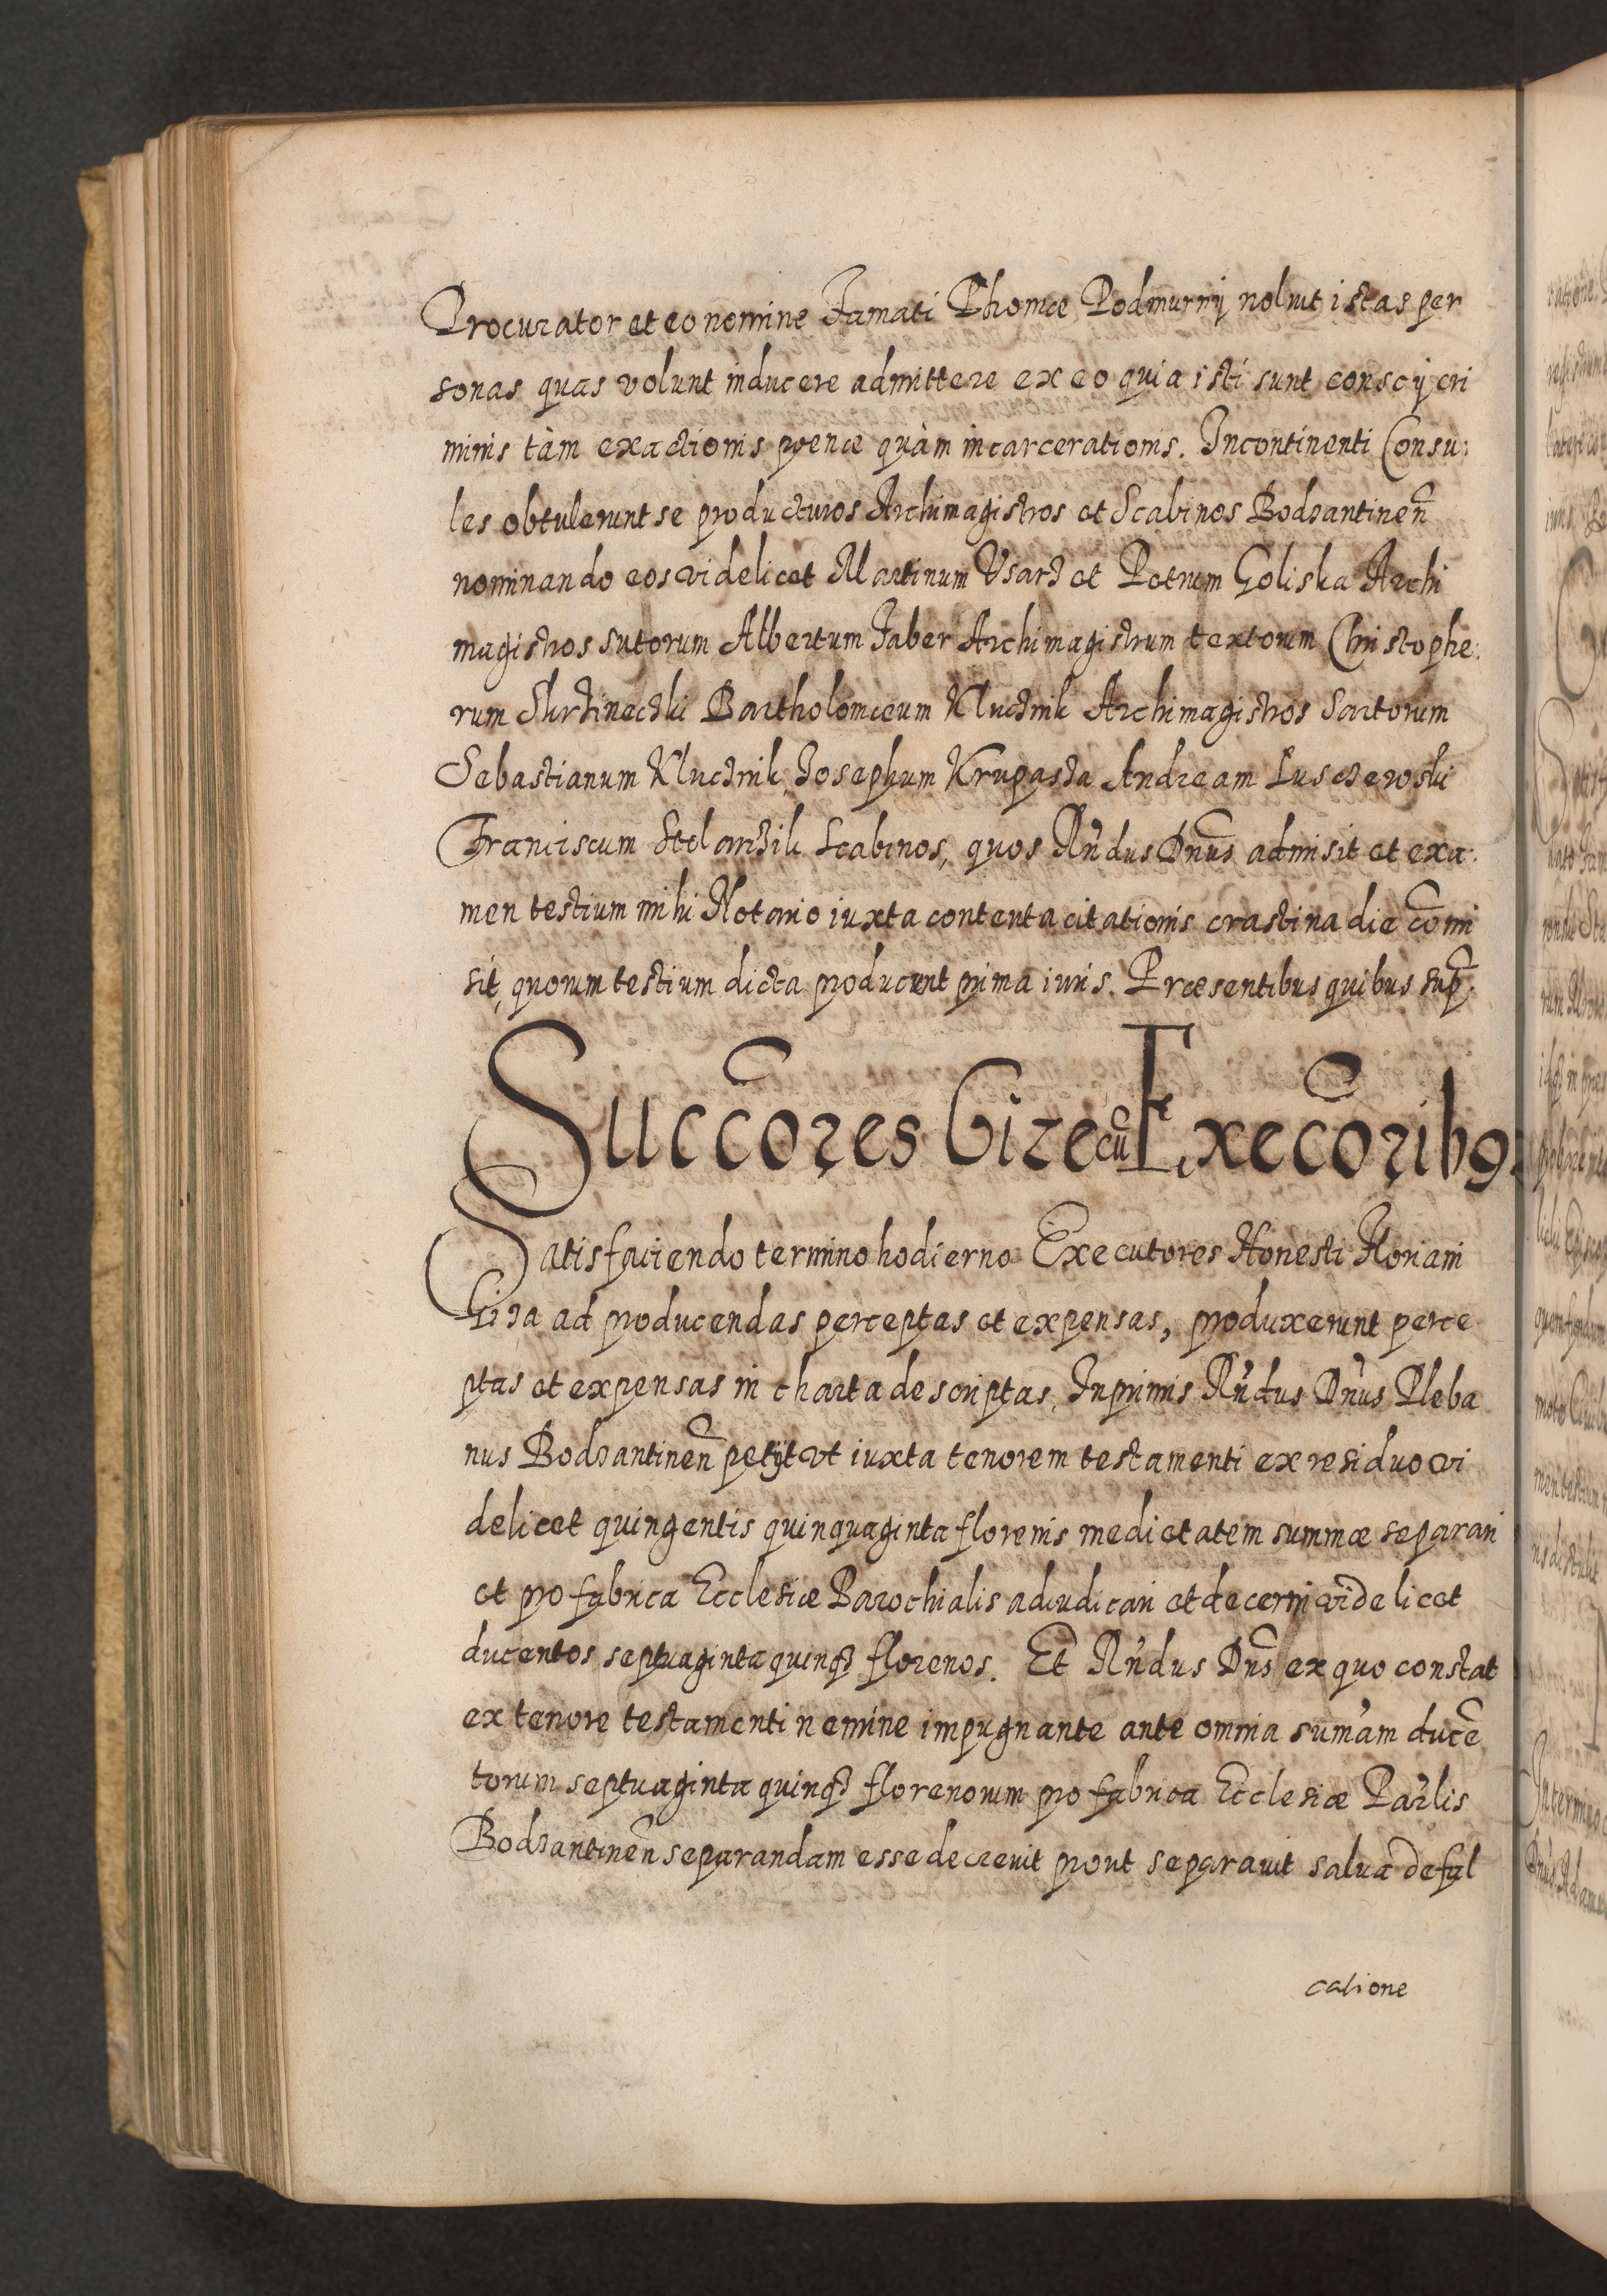 Procurator et eo nomine Famati Thomæ Podmurnÿ noluit istas per
sonas quas volunt inducere admittere ex eo quia isti sunt conscÿ cri
minis tàm exactionis pœnæ quàm incarcerationis. Incontinenti Consu:
les obtulerunt se producturos Archimagistros et Scabinos Bodzantineñ
nominando eos videlicet Martinum Usarz et Petrum Goliska Archi
magistros sutorum Albertum Faber Archimagistrum textorum Christophe:
rum Skrzineczki Bartholomæum Klucznik Archimagistros Sartorum
Sebastianum Klucznik, Josephum Krupasza Andream Lusczewski
Franciscum Stolarczik Scabinos, quos Rńdus Dñus admisit et exa:
men testium mihi Notario iuxta contenta citationis crastina die com̃i
sit, quorum testium dicta producunt prima iuris. Præsentibus quibus sup̃.
Succõres Gizecũ Execõrib9
Satisfaciendo termino hodierno Executores Honesti Floriani
Giza ad producendas perceptas et expensas, produxerunt perce
ptas et expensas in charta descriptas, Inprimis Rńdus Dńus Pleba
nus Bodzantineñ petÿt vt iuxta tenorem testamenti ex residuo vi
delicet quingentis quinquaginta florenis medietatem summæ separari
et pro fabrica Ecclesiæ Parochialis adiudicari et decerni videlicet
ducentos septuaginta quinqȝ florenos. Et Rńdus Dñs ex quo constat
ex tenore testamenti nemine impugnante ante omnia sum̃am ducẽ
torum septuaginta quinqȝ florenorum pro fabrica Ecclesiæ Par̃lis
Bodzantineñ separandam esse decreuit prout separauit salua defal
catione